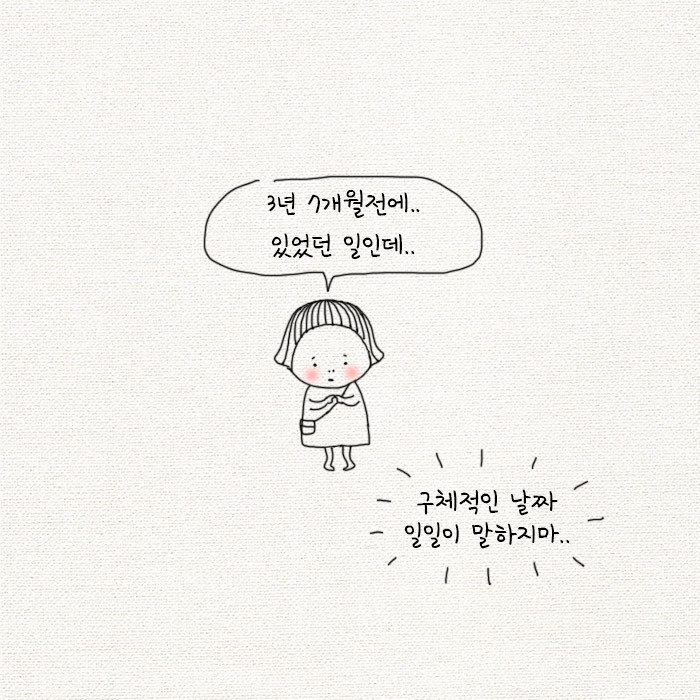 3년 7개월전에..
있었던 일인데..
구체적인 날짜
일일이 말하지마..